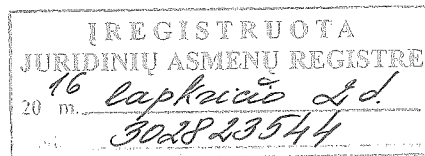 ĮREGISTRUOTA
JURIDINIŲ ASMENŲ REGISTRE
2016 m. lapkričio 2 d.
302823544